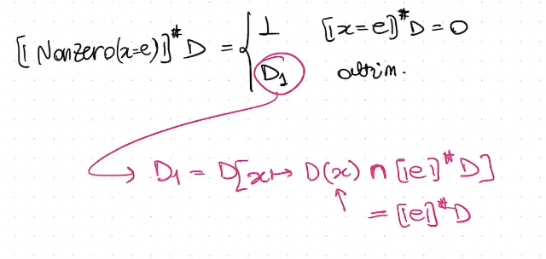 [| Nonzero(x=e) |]^# D = { ⊥ [| x=e |]^# D = 0
D₁ altrim.
D₁ = D[x ↦ D(x) ⊓ [|e|]^# D]
↑ = [|e|]^# D